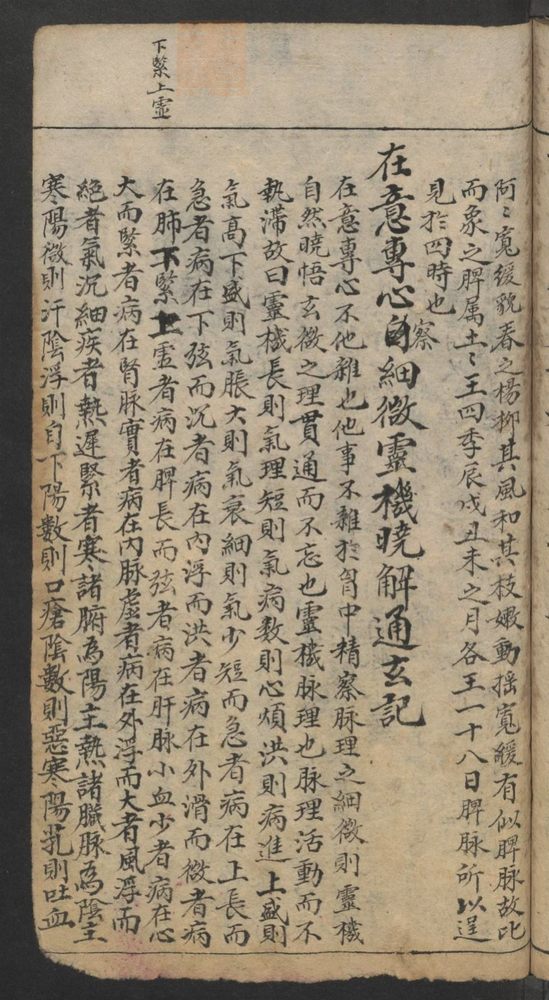 阿〻寬緩貌春之楊柳其風和其枝嫩動搖寬緩有似脾脉故比
而象之脾属土〻王四季辰戌丑未之月各王一十八日脾脉所以逞
見於四時也
在意專心察細微靈機曉解通玄記
在意專心不他雜也他事不雜於胷中精察脉理之細微則靈機
自然曉悟玄微之理貫通而不忘也靈機脉理也脉理活動而不
執滯故曰靈機長則氣理短則氣病数則心煩洪則病進上盛則
氣高下盛則氣脹大則氣衰細則氣少短而急者病在上長而
急者病在下弦而沉者病在內浮而洪者病在外滑而微者病
在肺下緊上虛者病在脾長而弦者病在肝脉小血少者病在心
大而緊者病在腎脉實者病在內脉虛者病在外浮而大者風浮而
絕者氣沉細疾者熱遲緊者寒諸腑為陽主熱諸臟脉為陰主
寒陽微則汗陰浮則自下陽數則口瘡陰數則惡寒陽芤則吐血
下緊上虛